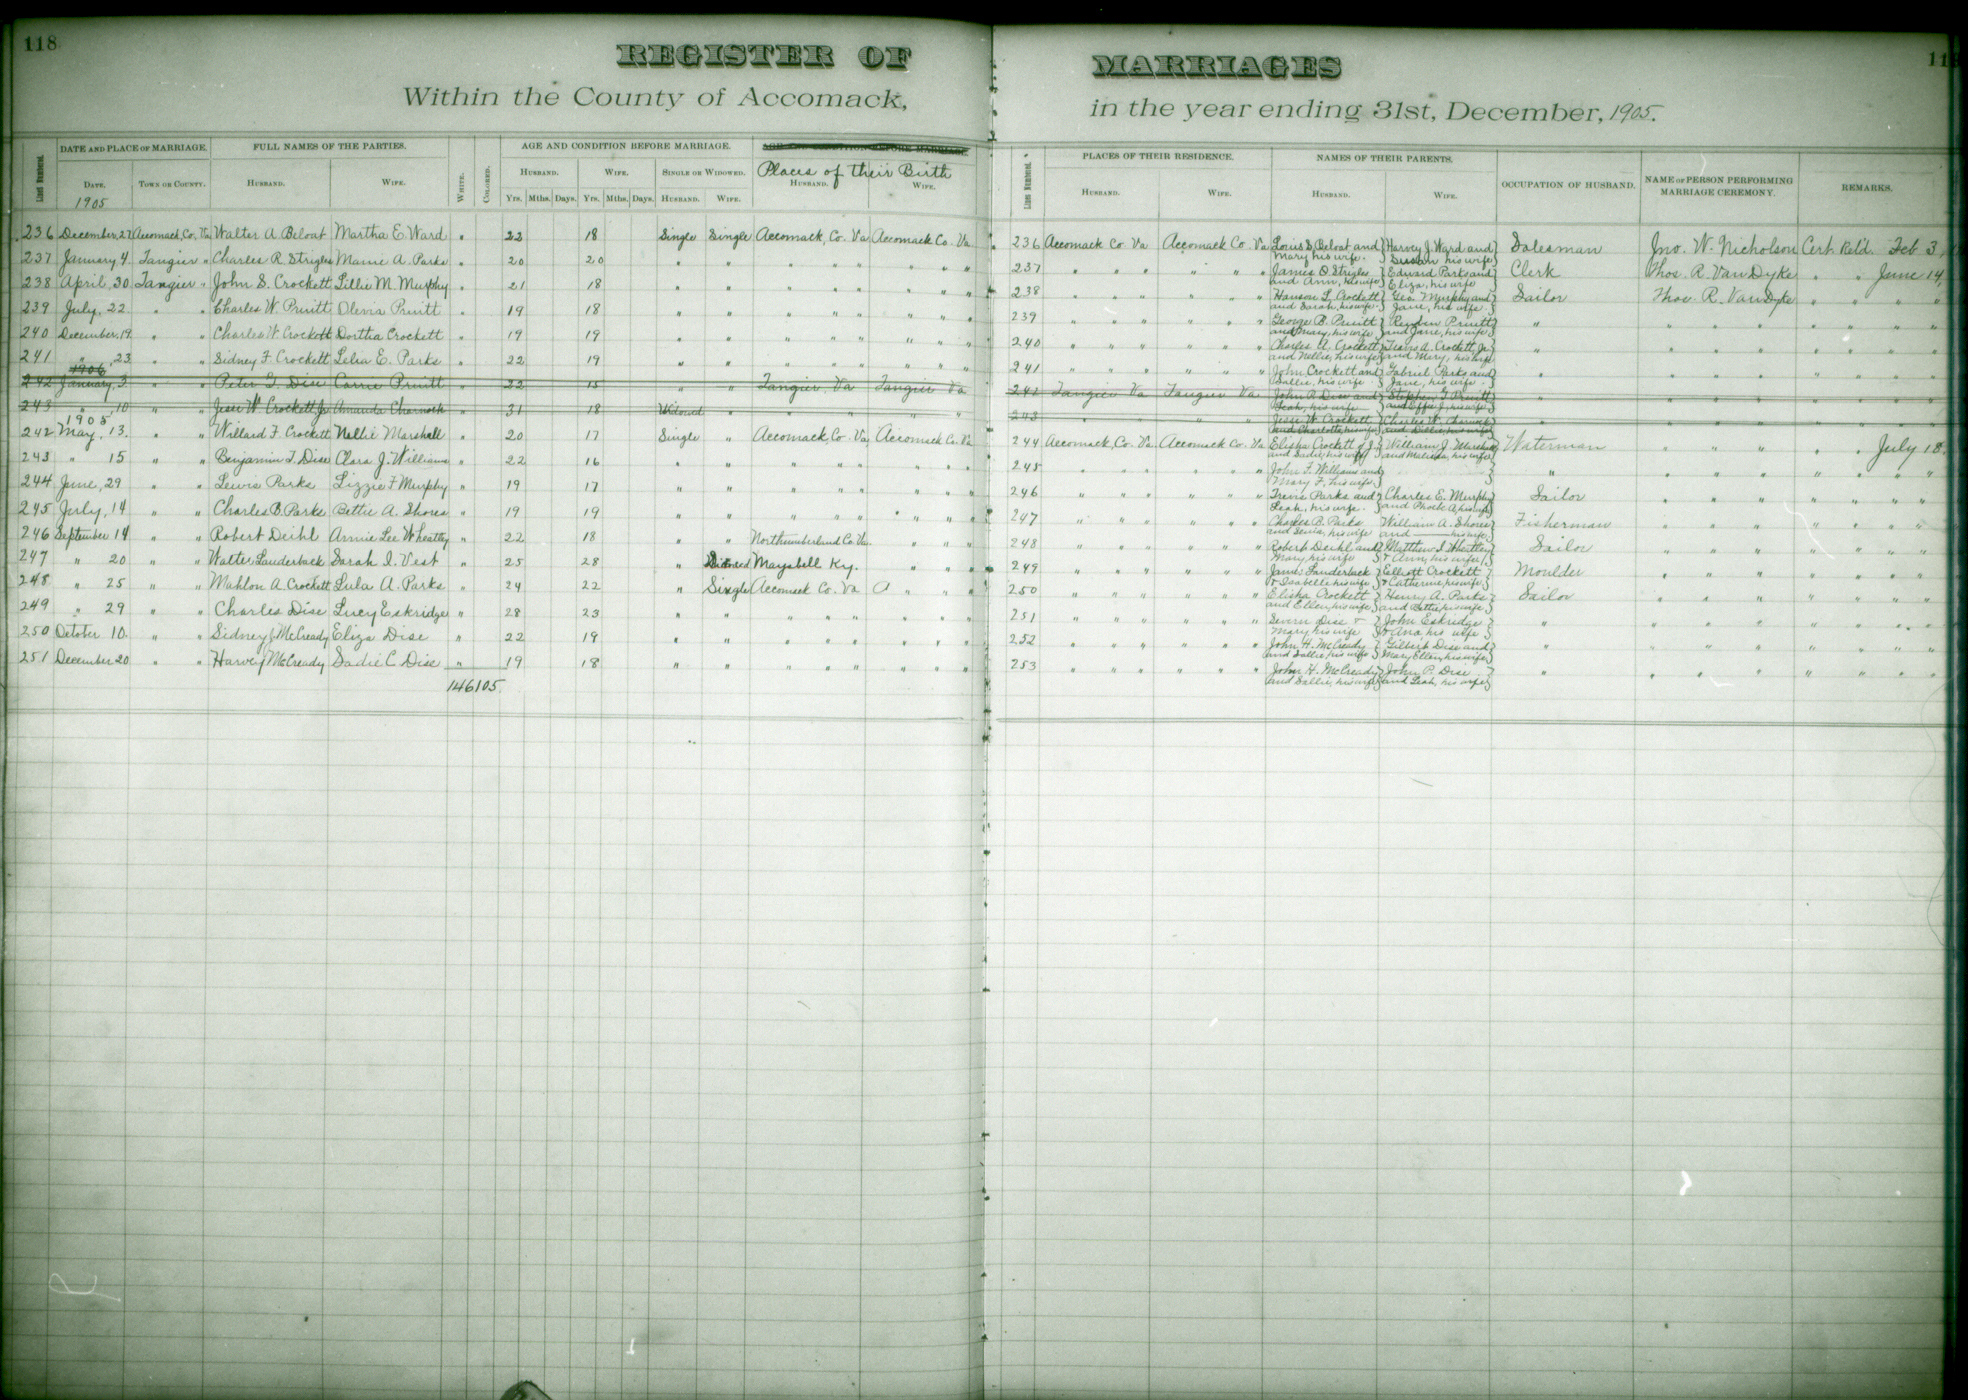 118
REGISTER OF MARRIAGES
Within the County of Accomack, in the year ending 31st, December, 1905.
Lines Numbered. DATE AND PLACE OF MARRIAGE. FULL NAMES OF THE PARTIES. WHITE. COLORED. AGE AND CONDITION BEFORE MARRIAGE. AGE AND CONDITION BEFORE MARRIAGE.
Places of their Birth
DATE. TOWN OR COUNTY. HUSBAND. WIFE. HUSBAND. WIFE. SINGLE OR WIDOWED. HUSBAND. WIFE.
1905 Yrs. Mths. Days. Yrs. Mths. Days. HUSBAND. WIFE.
236 December, 27 Accomack, Co. Va Walter A. Beloat Martha E. Ward " 22 18 Single Single Accomack, Co. Va Accomack Co. Va.
237 January, 4. Tangier " Charles R. Strigles Mamie A. Parks " 20 20 " " " " " " " "
238 April, 30 Tangier " John S. Crockett Lillie M. Murphy " 21 18 " " " " " " " "
239 July, 22 " " Charles W. Pruitt Olevia Pruitt " 19 18 " " " " " " " "
240 December, 19 " " Charles W Crockett Dortha Crockett " 19 19 " " " " " " " "
241 " 23 " " Sidney F. Crockett Lelia E. Parks " 22 19 " " " " " " " "
1906
242 January, 3 " " Peter T. Dise Carrie Pruitt " 22 15 " " Tangier Va Tangier Va
243 " 10 " " Jesse W. Crockett Jr Amanda Charnock " 31 18 Widowed " " " " "
1905
242 May, 13. " " Willard F. Crockett Nellie Marshall " 20 17 Single " Accomack Co. Va Accomack Co. Va
243 " 15 " " Benjamin T. Dise Clara J. Williams " 22 16 " " " " " " " "
244 June, 29 " " Lewis Parks Lizzie F Murphy " 19 17 " " " " " " " "
245 July, 14 " " Charles B Parks Bettie A. Shores " 19 19 " " " " " " " "
246 September 14 " " Robert Deihl Annie Lee Wheatley " 22 18 " " Northumberland Co. Va. " " "
247 " 20 " " Walter Lauderback Sarah I. Vest " 25 28 " Divorced Maysbell Ky. " " "
248 " 25 " " Mahlon A Crockett Lula A. Parks " 24 22 " Single Accomack Co. Va " " "
249 " 29 " " Charles Dise Lucy Eskridge " 28 23 " " " " " " " "
250 October 10. " " Sidney J. McCready Eliza Dise " 22 19 " " " " " " " "
251 December 20 " " Harvey McCready Sadie C. Dise " 19 18 " " " " " " " "
146 105.
Lines Numbered. PLACES OF THEIR RESIDENCE. NAMES OF THEIR PARENTS. OCCUPATION OF HUSBAND. NAME OF PERSON PERFORMING MARRIAGE CEREMONY. REMARKS.
HUSBAND. WIFE. HUSBAND. WIFE.
236 Accomack Co. Va Accomack Co. Va Louis S. Beloat and Mary, his wife. Harvey J. Ward and Susan his wife Salesman Jno. W. Nicholson Cert. Ret'd. Feb 3,
237 " " " " " " James O Strigles and Ann, his wife Edward Parks and Eliza, his wife Clerk Thos. R. VanDyke " " June 14,
238 " " " " " " Hanson L. Crockett and Sarah, his wife Geo. Murphy and Jane, his wife Sailor Thos. R. VanDyke " " " "
239 " " " " " " George B. Pruitt and Mary, his wife Reuben Pruitt and Jane, his wife " " " " " " " "
240 " " " " " " Charles A. Crockett and Nellie, his wife Travis A. Crockett Jr and Mary, his wife " " " " " " " "
241 " " " " " " John Crockett and Sallie, his wife. Gabriel Parks and Jane, his wife. " " " " " " " "
Tangier Va Tangier Va John P. Dise and Leah, his wife Stephen T. Pruitt and Effie J. his wife " " " " " " "
243 " " " " Jesse W. Crockett and Charlotte, his wife Charles W. Charnock and his wife " " " " " " "
244 Accomack Co. Va Accomack Co. Va Elisha Crockett of J. and Sadie, his wife William J. Marshall and Malissa, his wife Waterman " " " " " July 18.
245 " " " " " " John F. Williams and Mary F, his wife " " " " " " " "
246 " " " " " " Travis Parks and Leah, his wife. Charles E. Murphy and Phoeb A, his wife Sailor " " " " " " "
247 " " " " " " Charles B. Parks and his wife William A. Shores and ——— his wife Fisherman " " " " " " "
248 " " " " " " Robert Deihl and Mary, his wife Matthew S. Wheatley & Ann, his wife Sailor " " " " " " "
249 " " " " " " James Lauderback & Isabelle, his wife Elliott Crockett & Catherine, his wife Moulder " " " " " " "
250 " " " " " " Elisha Crockett and Ellen, his wife Henry A. Parks and Bettie, his wife Sailor " " " " " " "
251 " " " " " " Severn Dise & Mary, his wife John Eskridge & Ana, his wife " " " " " " " "
252 " " " " " " John H. McCready and Sallie, his wife Gilbert Dise and Mary Ellen, his wife " " " " " " " "
253 " " " " " " John H. McCready and Sallie, his wife John P. Dise and Leah, his wife " " " " " " " "